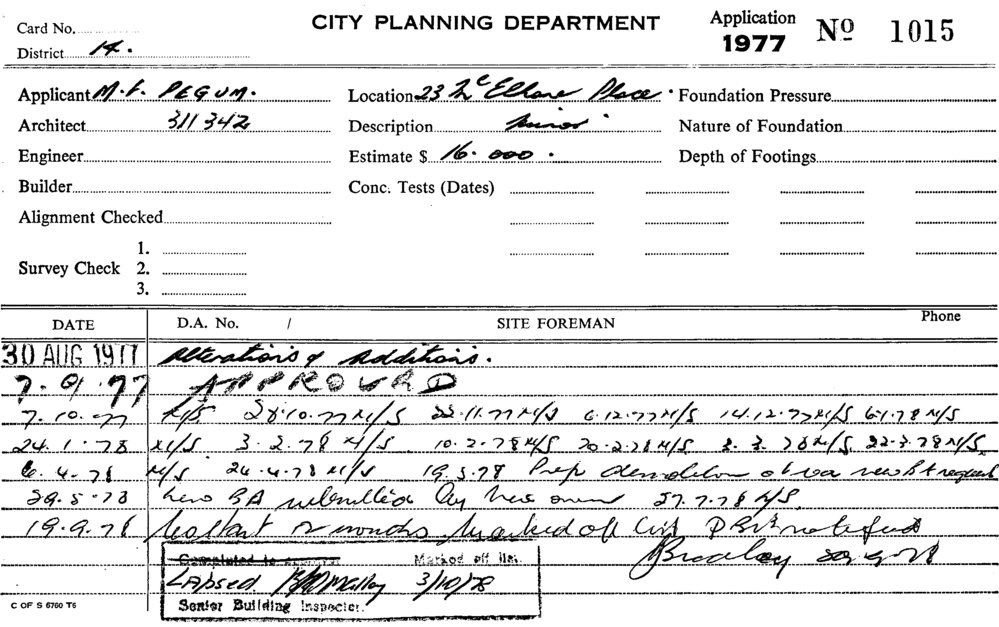 CITY PLANNING DEPARTMENT
Application
1977 № 1015
Card No.
District 14.
Applicant M. F. PEGUM. Location 23 McElhone Place. Foundation Pressure
Architect 311342 Description minor Nature of Foundation
Engineer Estimate $ 16.000. Depth of Footings
Builder Conc. Tests (Dates)
Alignment Checked
Survey Check
1.
2.
3.
DATE D.A. No. / SITE FOREMAN Phone
30 AUG 1977 Alterations & Additions.
7.9.77 APPROVED
7.10.77 N/S. 28.10.77 N/S 22.11.77 N/S 6.12.77 N/S 14.12.77 N/S 6.1.78 N/S
24.1.78 N/S. 3.2.78 N/S 10.2.78 N/S 20.2.78 N/S. 3.3.78 N/S. 22.3.78 N/S.
6.4.78 N/S 26.4.78 N/S 19.5.78 Prep demolition new request
29.5.78 New BA submitted by new owner 27.7.78 N/S.
19.9.78 months marked off notified
Completed to Marked off list
Lapsed 3/10/78
Senior Building Inspector.
C OF S 6760 T6